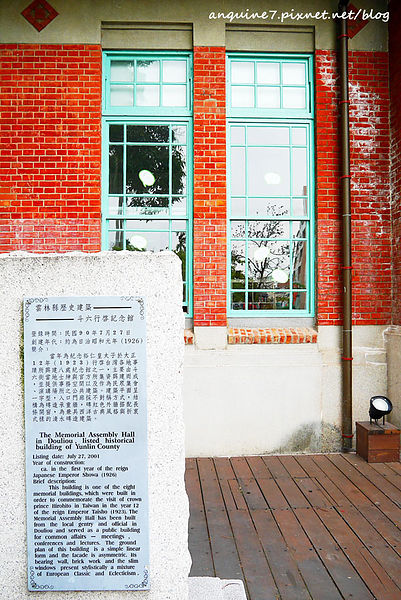 anquine7.pixnet.net/blog
雲林縣歷史建築
斗六行啓記念館
登錄時間：民國90年7月27日
創建年代：約為日治昭和元年(1926)
簡介：
The Memorial Assembly Hall
in Douliou , listed historical
building of Yunlin County
Listing date: July 27, 2001
Year of construction:
ca. in the first year of the reign
Japanese Emperor Showa (1926)
Brief description:
This building is one of the eight
memorial buildings, which were built in
order to commemorate the visit of crown
prince Hirohito in Taiwan in the year 12
of the reign Emperor Taisho (1923). The
Memorial Assembly Hall has been built
from the local gentry and official in
Douliou and served as a public building
for common affairs — meetings ,
conferences and lectures. The ground
plan of this building is a simple linear
form and the facade is asymmetric. Its
bearing wall, brick work and the slim
windows present stylistically a mixture
of European Classic and Eclecticism.